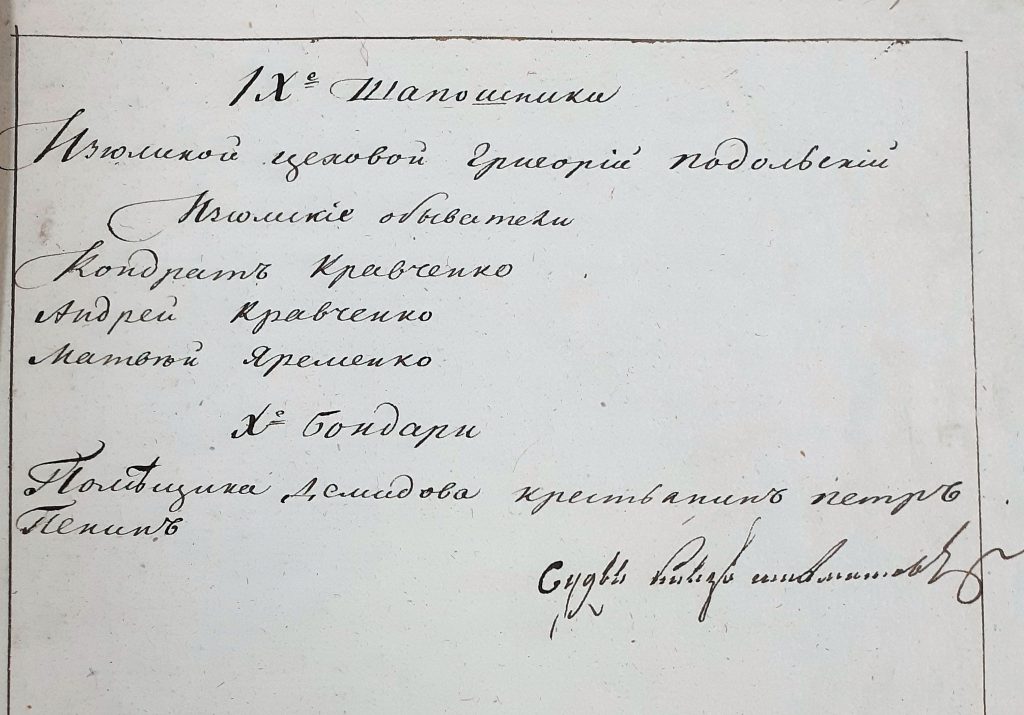 IXe Шапошники
Изюмской цеховой Григорій Подольскій
Изюмскіе обыватели
Кондратъ Кравченко
Андрей Кравченко
Матвѣй Яременко
Xe Бондари
Помѣщика Демидова крестьянинъ петръ
Пенинъ
Судья